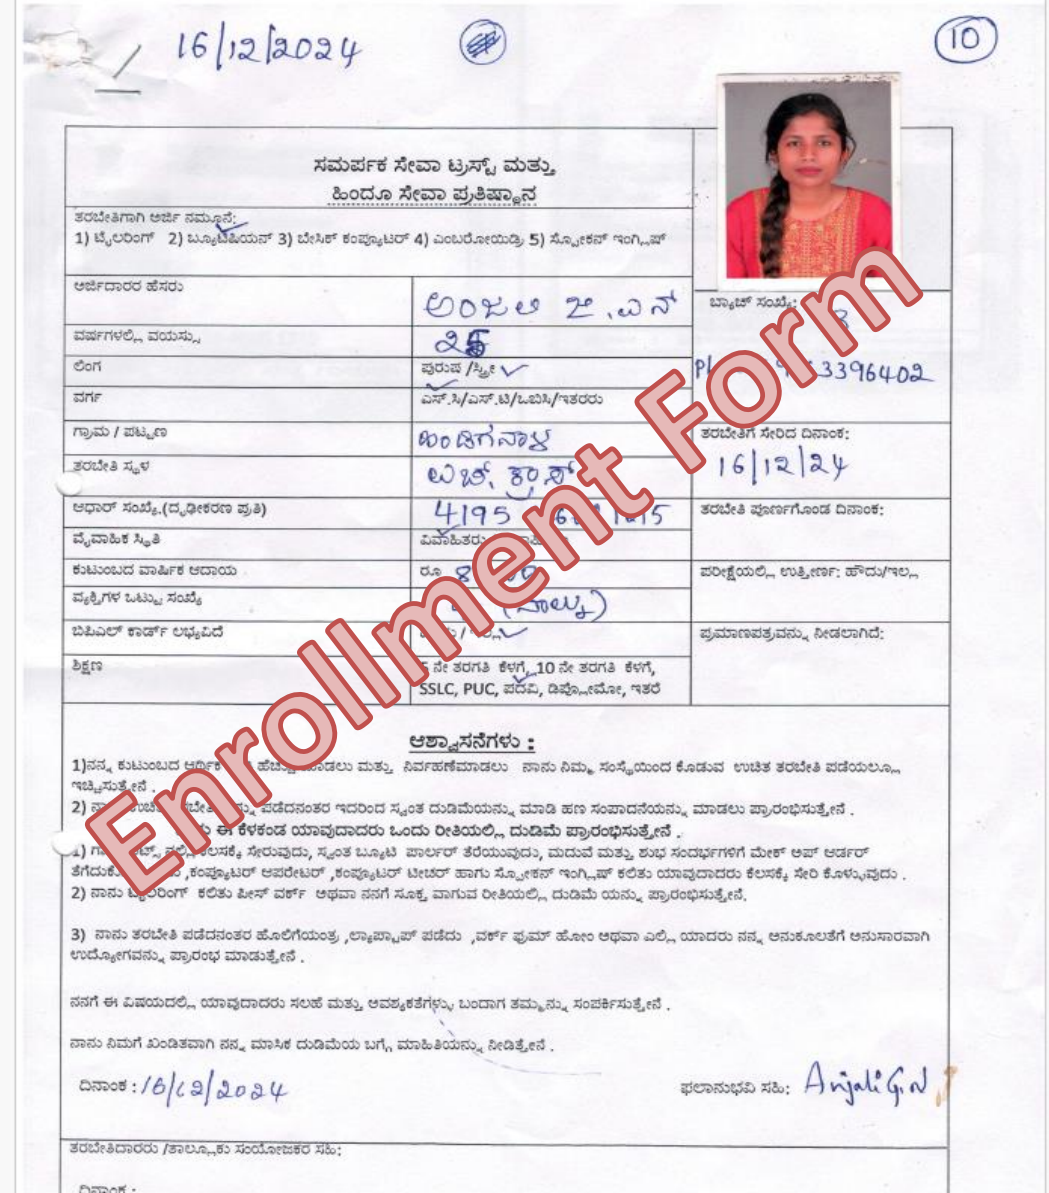 16/12/2024
10
ಸಮರ್ಪಕ ಸೇವಾ ಟ್ರಸ್ಟ್ ಮತ್ತು
ಹಿಂದೂ ಸೇವಾ ಪ್ರತಿಷ್ಠಾನ
ತರಬೇತಿಗಾಗಿ ಅರ್ಜಿ ನಮೂನೆ:
1) ಟೈಲರಿಂಗ್ 2) ಬ್ಯೂಟಿಷಿಯನ್ 3) ಬೇಸಿಕ್ ಕಂಪ್ಯೂಟರ್ 4) ಎಂಬರೋಯಿಡ್ರಿ 5) ಸ್ಪೋಕನ್ ಇಂಗ್ಲಿಷ್
ಅರ್ಜಿದಾರರ ಹೆಸರು ಅಂಜಲಿ ಜಿ.ಎನ್
ಬ್ಯಾಚ್ ಸಂಖ್ಯೆ:
ವರ್ಷಗಳಲ್ಲಿ ವಯಸ್ಸು
ಲಿಂಗ ಪುರುಷ /ಸ್ತ್ರೀ
3396402
ವರ್ಗ ಎಸ್.ಸಿ/ಎಸ್.ಟಿ/ಒಬಿಸಿ/ಇತರರು
ಗ್ರಾಮ / ಪಟ್ಟಣ ಹಿಂಡಿಗನಾಳ
ತರಬೇತಿಗೆ ಸೇರಿದ ದಿನಾಂಕ:
16/12/24
ತರಬೇತಿ ಸ್ಥಳ
ಆಧಾರ್ ಸಂಖ್ಯೆ.(ದೃಢೀಕರಣ ಪ್ರತಿ) 4195
ತರಬೇತಿ ಪೂರ್ಣಗೊಂಡ ದಿನಾಂಕ:
ವೈವಾಹಿಕ ಸ್ಥಿತಿ ವಿವಾಹಿತರು
ಕುಟುಂಬದ ವಾರ್ಷಿಕ ಆದಾಯ ರೂ
ಪರೀಕ್ಷೆಯಲ್ಲಿ ಉತ್ತೀರ್ಣ: ಹೌದು/ಇಲ್ಲ
ವ್ಯಕ್ತಿಗಳ ಒಟ್ಟು ಸಂಖ್ಯೆ (ನಾಲ್ಕು)
ಬಿಪಿಎಲ್ ಕಾರ್ಡ್ ಲಭ್ಯವಿದೆ
ಪ್ರಮಾಣಪತ್ರವನ್ನು ನೀಡಲಾಗಿದೆ:
ಶಿಕ್ಷಣ 5 ನೇ ತರಗತಿ ಕೆಳಗೆ, 10 ನೇ ತರಗತಿ ಕೆಳಗೆ,
SSLC, PUC, ಪದವಿ, ಡಿಪ್ಲೋಮೋ, ಇತರೆ
Enrollment Form
ಆಶ್ವಾಸನೆಗಳು :
1)ನನ್ನ ಕುಟುಂಬದ ಆರ್ಥಿಕ ಮತ್ತು ನಿರ್ವಹಣೆಮಾಡಲು ನಾನು ನಿಮ್ಮ ಸಂಸ್ಥೆಯಿಂದ ಕೊಡುವ ಉಚಿತ ತರಬೇತಿ ಪಡೆಯಲೂ
ಇಚ್ಛಿಸುತ್ತೇನೆ .
2) ಪಡೆದನಂತರ ಇದರಿಂದ ಸ್ವಂತ ದುಡಿಮೆಯನ್ನು ಮಾಡಿ ಹಣ ಸಂಪಾದನೆಯನ್ನು ಮಾಡಲು ಪ್ರಾರಂಭಿಸುತ್ತೇನೆ .
ಈ ಕೆಳಕಂಡ ಯಾವುದಾದರು ಒಂದು ರೀತಿಯಲ್ಲಿ ದುಡಿಮೆ ಪ್ರಾರಂಭಿಸುತ್ತೇನೆ .
1) ಸೇರುವುದು, ಸ್ವಂತ ಬ್ಯೂಟಿ ಪಾರ್ಲರ್ ತೆರೆಯುವುದು, ಮದುವೆ ಮತ್ತು ಶುಭ ಸಂದರ್ಭಗಳಿಗೆ ಮೇಕ್ ಅಪ್ ಆರ್ಡರ್
,ಕಂಪ್ಯೂಟರ್ ಆಪರೇಟರ್ ,ಕಂಪ್ಯೂಟರ್ ಟೀಚರ್ ಹಾಗು ಸ್ಪೋಕನ್ ಇಂಗ್ಲಿಷ್ ಕಲಿತು ಯಾವುದಾದರು ಕೆಲಸಕ್ಕೆ ಸೇರಿ ಕೊಳ್ಳುವುದು .
2) ನಾನು ಟೈಲರಿಂಗ್ ಕಲಿತು ಪೀಸ್ ವರ್ಕ್ ಅಥವಾ ನನಗೆ ಸೂಕ್ತ ವಾಗುವ ರೀತಿಯಲ್ಲಿ ದುಡಿಮೆ ಯನ್ನು ಪ್ರಾರಂಭಿಸುತ್ತೇನೆ.
3) ನಾನು ತರಬೇತಿ ಪಡೆದನಂತರ ಹೊಲಿಗೆಯಂತ್ರ ,ಲ್ಯಾಪ್ಟಾಪ್ ಪಡೆದು ,ವರ್ಕ್ ಫ್ರುಮ್ ಹೋಂ ಅಥವಾ ಎಲ್ಲಿ ಯಾದರು ನನ್ನ ಅನುಕೂಲತೆಗೆ ಅನುಸಾರವಾಗಿ
ಉದ್ಯೋಗವನ್ನು ಪ್ರಾರಂಭ ಮಾಡುತ್ತೇನೆ .
ನನಗೆ ಈ ವಿಷಯದಲ್ಲಿ ಯಾವುದಾದರು ಸಲಹೆ ಮತ್ತು ಅವಶ್ಯಕತೆಗಳ್ಳು ಬಂದಾಗ ತಮ್ಮನ್ನು ಸಂಪರ್ಕಿಸುತ್ತೇನೆ .
ನಾನು ನಿಮಗೆ ಖಂಡಿತವಾಗಿ ನನ್ನ ಮಾಸಿಕ ದುಡಿಮೆಯ ಬಗ್ಗೆ ಮಾಹಿತಿಯನ್ನು ನೀಡಿತ್ತೇನೆ .
ದಿನಾಂಕ : 16/12/2024 ಫಲಾನುಭವಿ ಸಹಿ: Anjali G.N
ತರಬೇತಿದಾರರು /ತಾಲ್ಲೂಕು ಸಂಯೋಜಕರ ಸಹಿ:
ದಿನಾಂಕ :